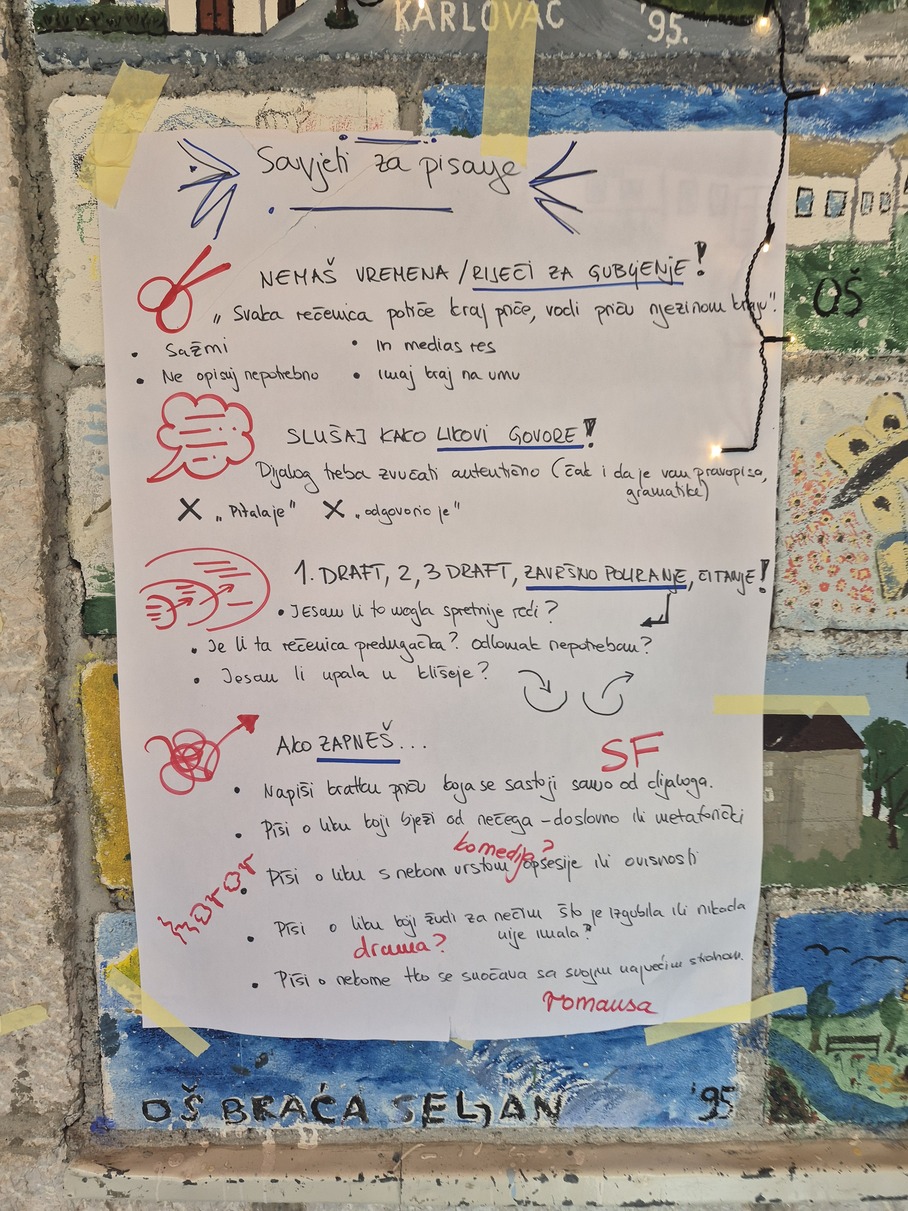 KARLOVAC '95.
Savjeti za pisanje
NEMAŠ VREMENA / RIJEČI ZA GUBLJENJE!
„Svaka rečenica potiče kraj priče, vodi priču njezinom kraju".
OŠ
• Sažmi
• In medias res
• Ne opisuj nepotrebno
• Imaj kraj na umu
SLUŠAJ KAKO LIKOVI GOVORE!
Dijalog treba zvučati autentično (čak i da je van pravopisa,
gramatike)
X „Pitala je" X „odgovorio je"
1. DRAFT, 2, 3 DRAFT, ZAVRŠNO POLIRANJE, ČITANJE!
• Jesam li to mogla spretnije reći?
• Je li ta rečenica predugačka? Odlomak nepotreban?
• Jesam li upala u klišeje?
Ako ZAPNEŠ...
SF
• Napiši kratku priču koja se sastoji samo od dijaloga.
• Piši o liku koji bježi od nečega – doslovno ili metaforički
komedija?
• Piši o liku s nekom vrstom opsesije ili ovisnosti
horor
• Piši o liku koji žudi za nečim što je izgubila ili nikada
nije imala?
drama?
• Piši o nekome tko se suočava sa svojim najvećim strahom.
romansa
OŠ BRAĆA SELJAN '95